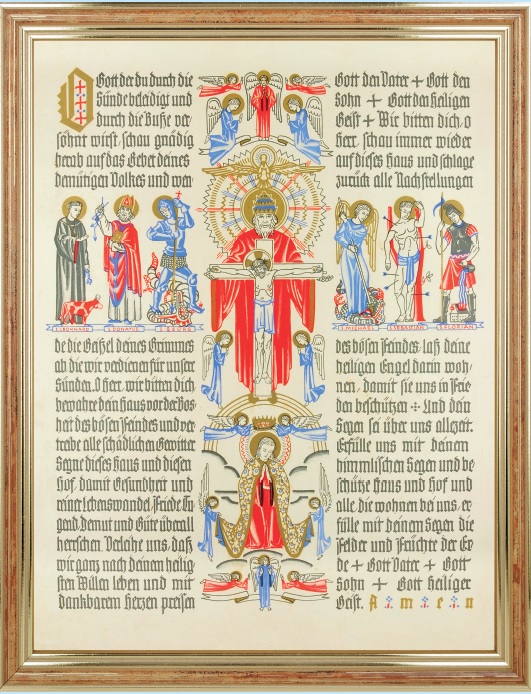 O Gott der du durch die
Sünde beleidigt und
durch die Buße ver
söhnt wirst, schau gnädig
herab auf das Gebet deines
demütigen Volkes und wen
S. LEONHARD S. DONATUS S. GEORG
de die Geißel deines Grimmes
ab die wir verdienen für unser
Sünden. O Herr, wir bitten dich
bewahre dein Haus vor der Bos
hat des bösen Feindes und ver
treibe alle schädlichen Gewitter
Segne dieses Haus und diesen
Hof, damit Gesundheit und
reiner Lebenswandel, Friede Tu
gend, Demut und Güte überall
herrschen Verleihe uns, daß
wir ganz nach deinem heilig
sten Willen leben und mit
dankbarem Herzen preisen
Gott den Vater + Gott den
Sohn + Gott den Heiligen
Geist + Wir bitten dich, o
Herr, schau immer wieder
auf dieses Haus und schlage
zurück alle Nachstellungen
S. MICHAEL S. SEBASTIAN S. FLORIAN
des bösen Feindes: laß deine
heiligen Engel darin woh
nen, damit sie uns in Frie
den beschützen + Und dein
Segen sei über uns allezeit.
Erfülle uns mit deinen
himmlischen Segen und be
schütze Haus und Hof und
alle die wohnen bei uns, er
fülle mit deinem Segen die
Felder und Früchte der Er
de + Gott Vater + Gott
Sohn + Gott Heiliger
Geist. A m e n